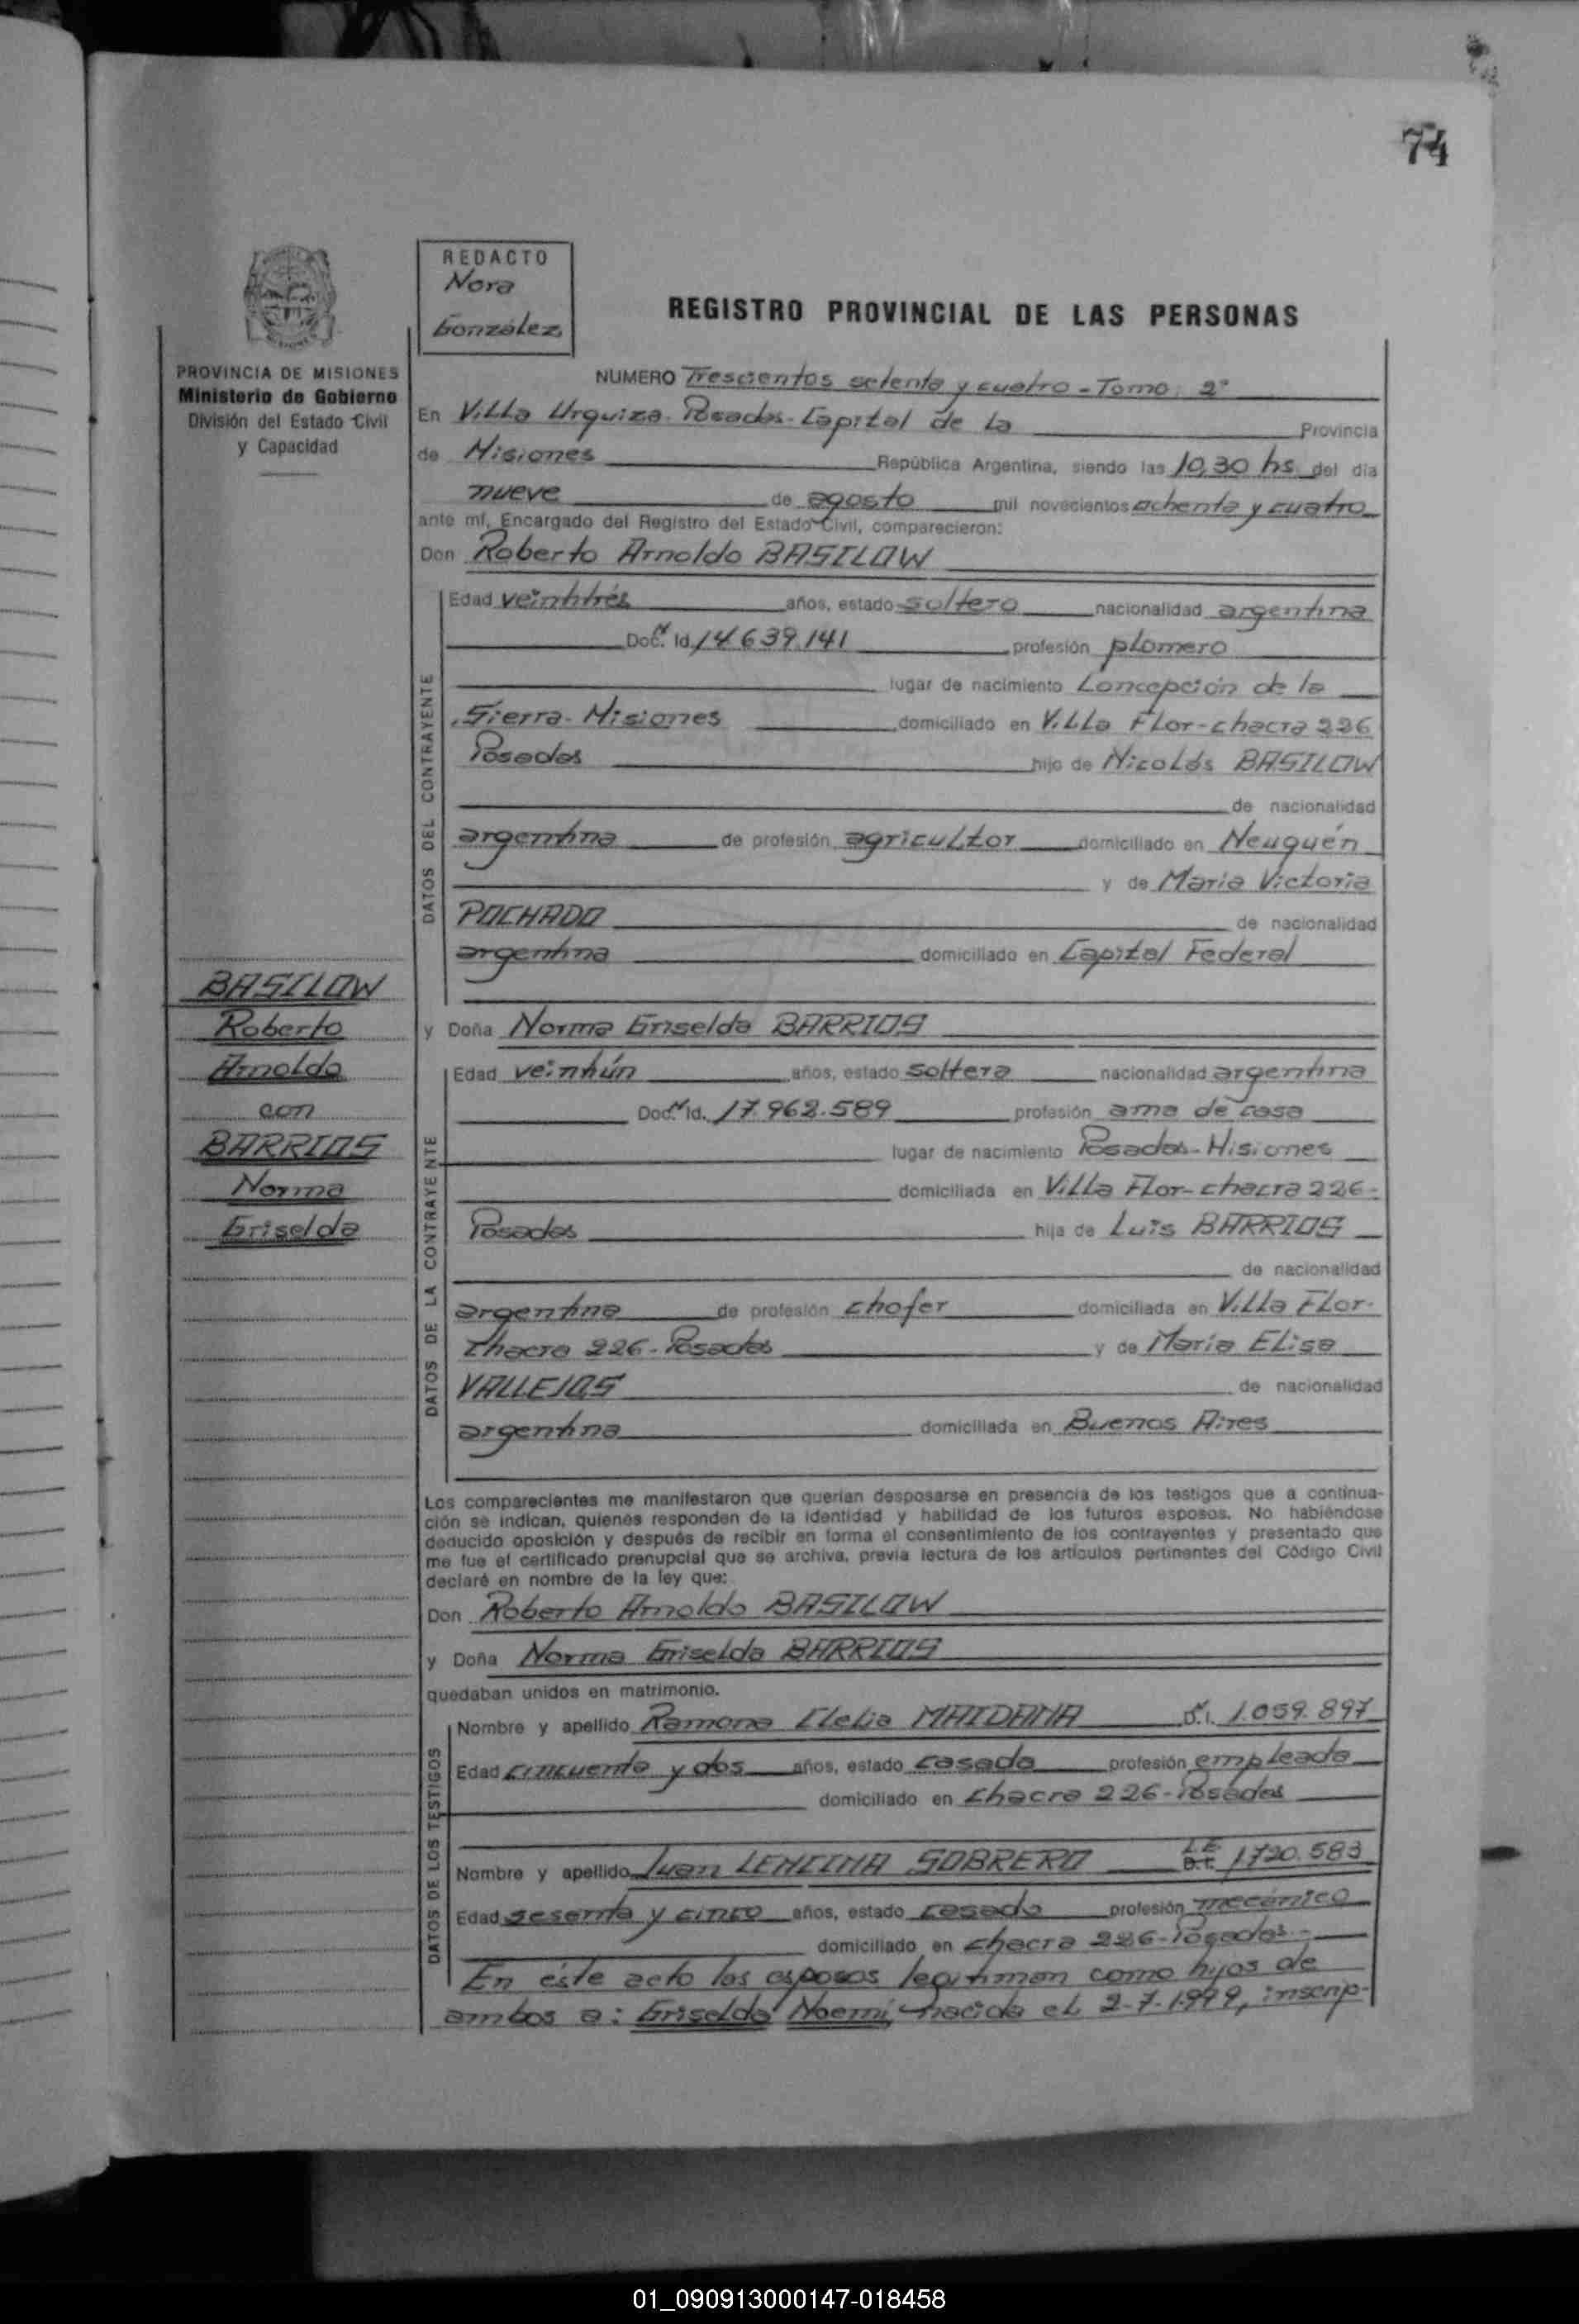 74
REDACTO
Nora
González
REGISTRO PROVINCIAL DE LAS PERSONAS
PROVINCIA DE MISIONES
Ministerio de Gobierno
División del Estado Civil
y Capacidad
NUMERO Trescientos setenta y cuatro - Tomo: 2º
En Villa Urquiza. Posadas - Capital de La Provincia
de Misiones República Argentina, siendo las 10,30 hs. del día
nueve de agosto mil novecientos ochenta y cuatro
ante mí, Encargado del Registro del Estado Civil, comparecieron:
Don Roberto Arnoldo BASILOW
DATOS DEL CONTRAYENTE
Edad veintitrés años, estado soltero nacionalidad argentina
Doc. Id. 14.639.141 profesión plomero
lugar de nacimiento Concepción de la
Sierra - Misiones domiciliado en Villa Flor - chacra 226
Posadas hijo de Nicolás BASILOW
de nacionalidad
argentina de profesión agricultor domiciliado en Neuquén
y de María Victoria
POCHADO de nacionalidad
argentina domiciliado en Capital Federal
BASILOW
Roberto
Arnoldo
con
BARRIOS
Norma
Griselda
y Doña Norma Griselda BARRIOS
DATOS DE LA CONTRAYENTE
Edad veintiún años, estado soltera nacionalidad argentina
Doc. Id. 17.962.589 profesión ama de casa
lugar de nacimiento Posadas - Misiones
domiciliada en Villa Flor - chacra 226 -
Posadas hija de Luis BARRIOS
de nacionalidad
argentina de profesión chofer domiciliada en Villa Flor -
Chacra 226 - Posadas y de María Elisa
VALLEJOS de nacionalidad
argentina domiciliada en Buenos Aires
Los comparecientes me manifestaron que querían desposarse en presencia de los testigos que a continua-
ción se indican, quienes responden de la identidad y habilidad de los futuros esposos. No habiéndose
deducido oposición y después de recibir en forma el consentimiento de los contrayentes y presentado que
me fue el certificado prenupcial que se archiva, previa lectura de los artículos pertinentes del Código Civil
declaré en nombre de la ley que:
Don Roberto Arnoldo BASILOW
y Doña Norma Griselda BARRIOS
quedaban unidos en matrimonio.
DATOS DE LOS TESTIGOS
Nombre y apellido Ramona Clelia MAIDANA D.I. 1.059.897
Edad cincuenta y dos años, estado casada profesión empleada
domiciliado en chacra 226 - Posadas
Nombre y apellido Juan LENCINA SOBRERO L.E. D.I. 1.720.583
Edad sesenta y cinco años, estado casado profesión mecánico
domiciliado en chacra 226 - Posadas -
En éste acto los esposos legitiman como hijos de
ambos a: Griselda Noemí, nacida el 2-7-1.979, inscrip-
01_090913000147-018458